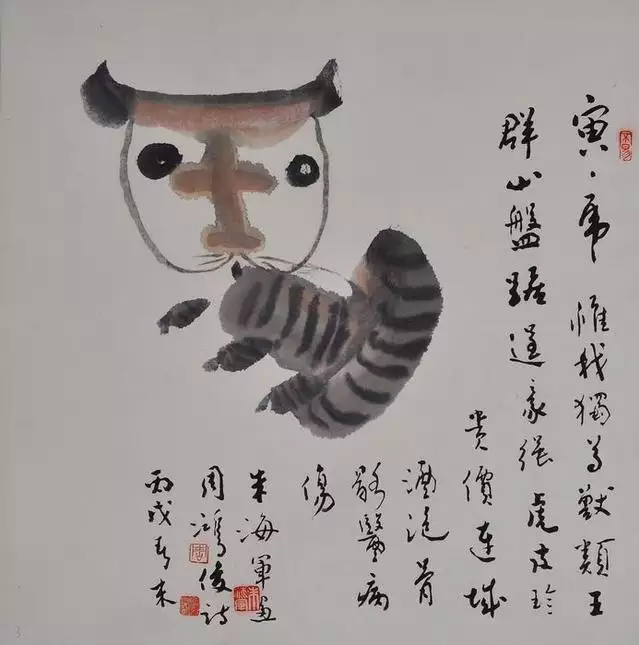 寅、虎 惟我獨尊獸類王
群山盤踞逞豪强 虎皮珍
贵價連城
酒泡骨
骸醫病
傷
朱海軍畫
周鴻俊詩
丙戌春末
3